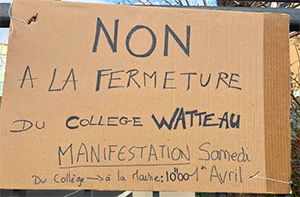 NON
A LA FERMETURE
DU COLLEGE WATTEAU
MANIFESTATION Samedi
Du Collège → à la Mairie: 10h00 1er Avril